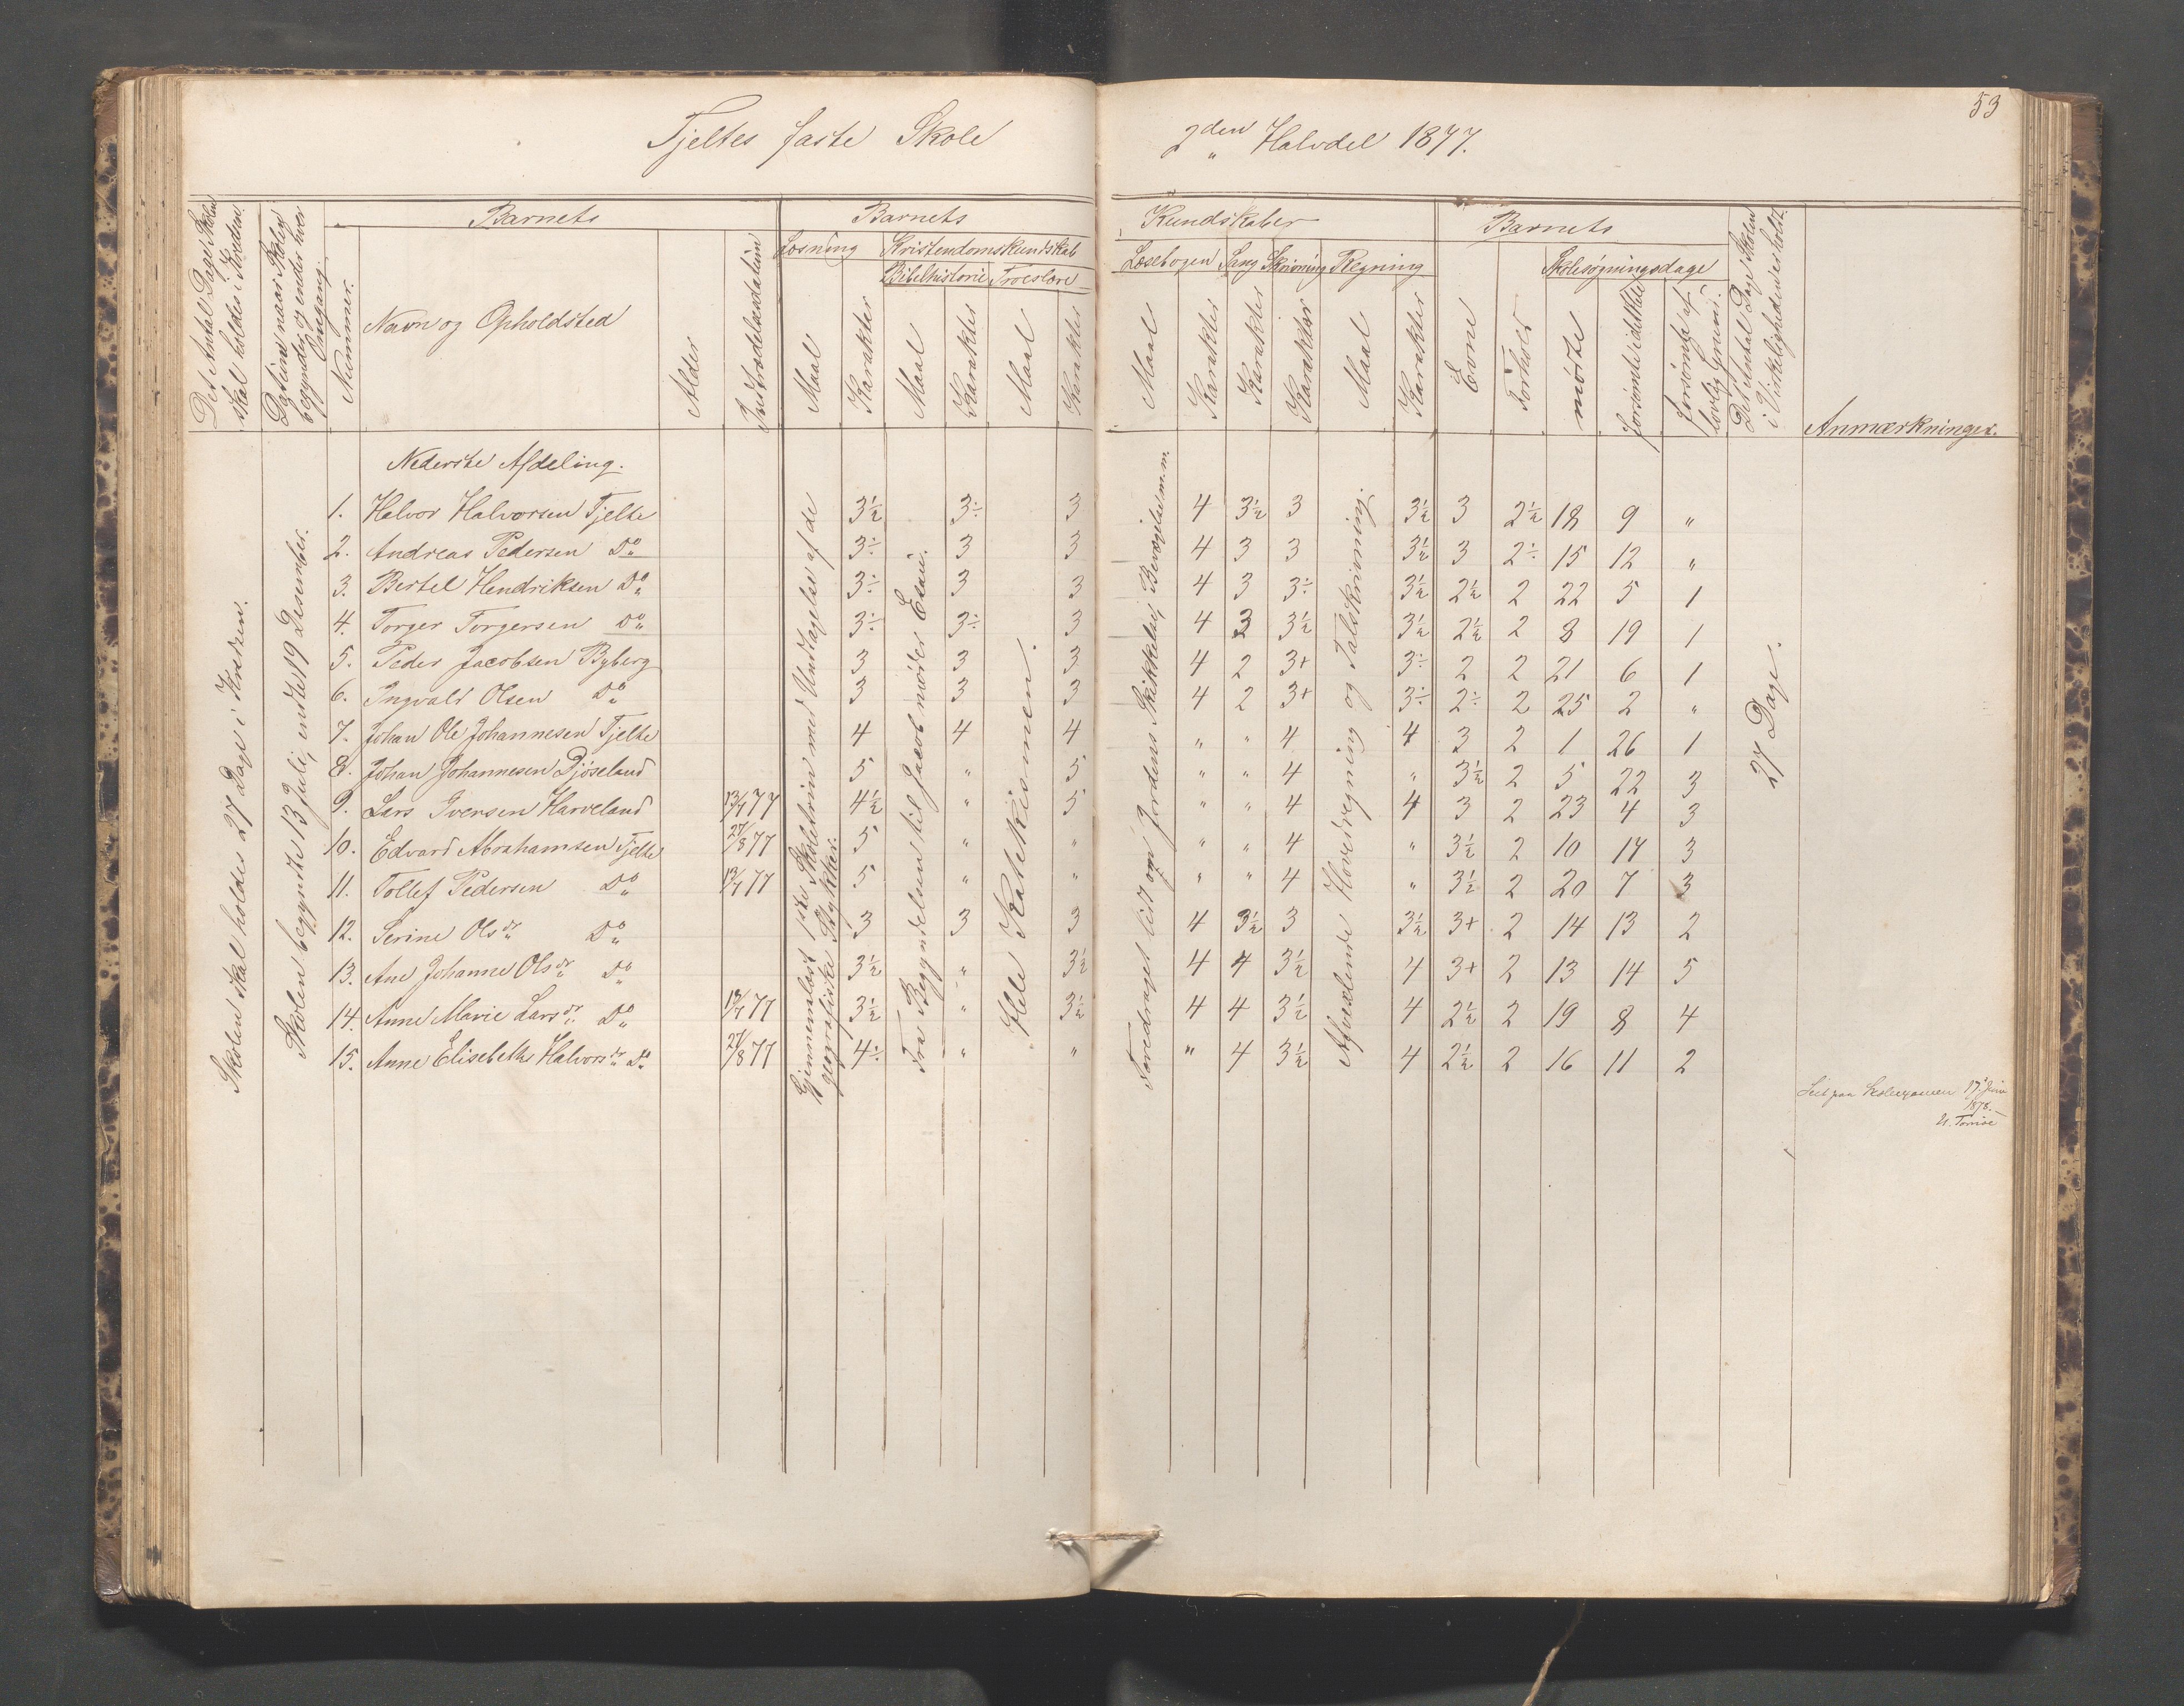 Tjeltes faste Skole
2den Halvdel 1877.
53
Det Antal Dage Skolen skal holdes i Kredsen.
Datum naar Skolen begynder og ender hver Omgang.
Barnets
Nummer.
Navn og Opholdsted
Alder
Indtrædelsesdatum
Barnets
Kundskaber
Læsning
Maal
Karakter
Kristendomskundskab
Bibelhistorie
Maal
Karakter
Troeslære
Maal
Karakter
Læsebogen
Maal
Karakter
Sang
Karakter
Skrivning
Karakter
Regning
Maal
Karakter
Barnets
Evne
Forhold
Skolesøgningsdage
mødte
forsømte i det Hele
forsømte af lovlig Grund.
Det Antal Dage Skolen i Virkeligheden er holdt.
Anmærkninger.
Skolen skal holdes 27 Dage i Kredsen.
Skolen begyndte 13 Juli, endte 19 Desember.
Gjennemlæst 1ste Skoletrin med Undtagelse af de geografiske Stykker.
Fra Begyndelsen til Jacob møder Esau.
Hele Katekismen.
Foredraget lidt om Jordens Skikkelse, Bevægelse m.m.
Afvexlende Hovedregning og Talskrivning.
27 Dage.
Nederste Afdeling.
1. Halvor Halvorsen Tjelte 3½ 3÷ 3 4 3½ 3 3½ 3 2½ 18 9 "
2. Andreas Pedersen Do 3÷ 3 3 4 3 3 3½ 3 2÷ 15 12 "
3. Bertel Hendriksen Do 3÷ 3 3 4 3 3÷ 3½ 2½ 2 22 5 1
4. Torger Torgersen Do 3÷ 3÷ 3 4 3 3½ 3½ 2½ 2 8 19 1
5. Peder Jacobsen Byberg 3 3 3 4 2 3+ 3÷ 2 2 21 6 1
6. Ingvald Olsen Do 3 3 3 4 2 3+ 3÷ 2÷ 2 25 2 "
7. Johan Ole Johannesen Tjelte 4 4 4 " " 4 4 3 2 1 26 1
8. Johan Johannesen Djøseland 5 " 5 " " 4 " 3½ 2 5 22 3
9. Lars Iversen Harveland 13/7 77 4½ " 5 " " 4 4 3 2 23 4 3
10. Edvard Abrahamsen Tjelte 27/8 77 5 " " " " 4 " 3½ 2 10 17 3
11. Tollef Pedersen Do 13/7 77 5 " " " " 4 " 3½ 2 20 7 3
12. Serine Olsdr Do 3 3 3 4 3½ 3 3½ 3+ 2 14 13 2
13. Ane Johanne Olsdr Do 3½ " 3½ 4 4 3½ 4 3+ 2 13 14 5
14. Anne Marie Larsdr Do 13/7 77 3½ " 3½ 4 4 3½ 4 2½ 2 19 8 4
15. Anne Elisebeth Halvorsdr Do 27/8 77 4÷ " " " 4 3½ 4 2½ 2 16 11 2
Seet paa Skolexamen 17 Juni
1878.